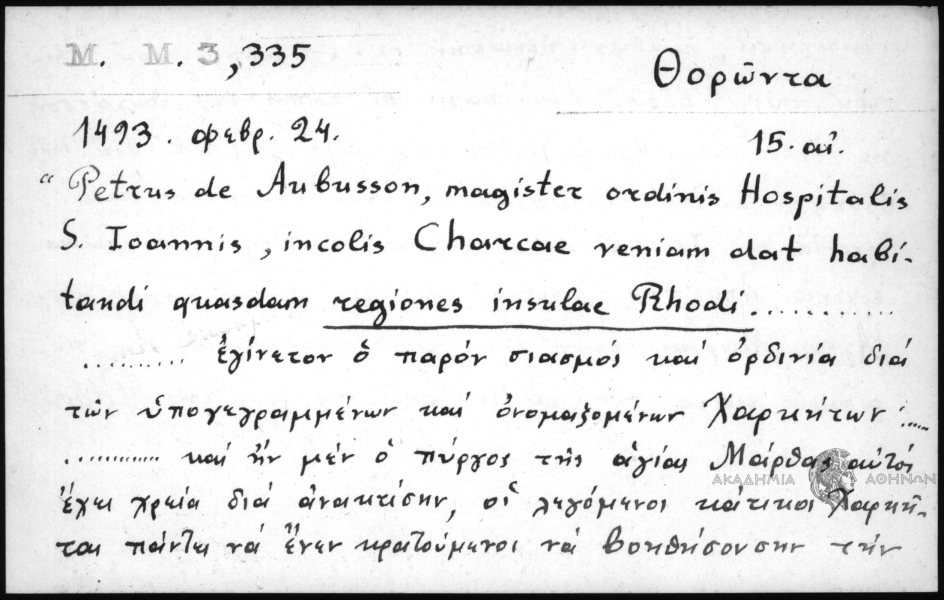 M. M. 3,335
Θορῶντα
1493. φεβρ. 24.
15. αἰ.
“Petrus de Aubusson, magister ordinis Hospitalis
S. Ioannis, incolis Charcae veniam dat habi-
tandi quasdam regiones insulae Rhodi............
.......... ἐγίνετον ὁ παρόν σιασμός καί ὀρδινία διά
τῶν ὑπογεγραμμένων καί ὀνομαζομένων Χαρκήτων
............ καί ἦν μέν ὁ πύργος τῆς ἁγίας Μάρθας αὐτοί
ἔχει χρεία διά ἀνακτίσην, οἱ λεγόμενοι κάτικοι Χαρκῆ-
ται πάντα νά ἔνεν κρατούμενοι νά βοηθήσουσην τήν
ΑΚΑΔΗΜΙΑ ΑΘΗΝΩΝ